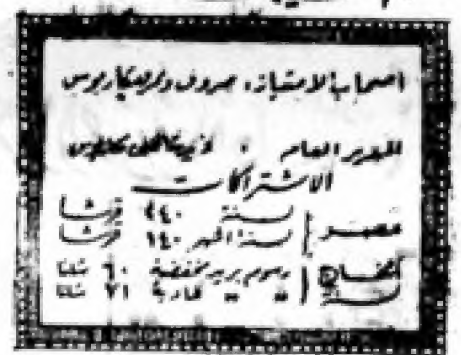 اصحاب الامتياز: صروف ونمر ومكاريوس
المدير العام :
الاشتراكات
مصر { لسنة ٢٤٠ قرشا
لستة اشهر ١٤٠ قرشا
الخارج { رسوم بريد مخفضة ٦٠ شلنا
لسنة { " " عادية ٧١ شلنا